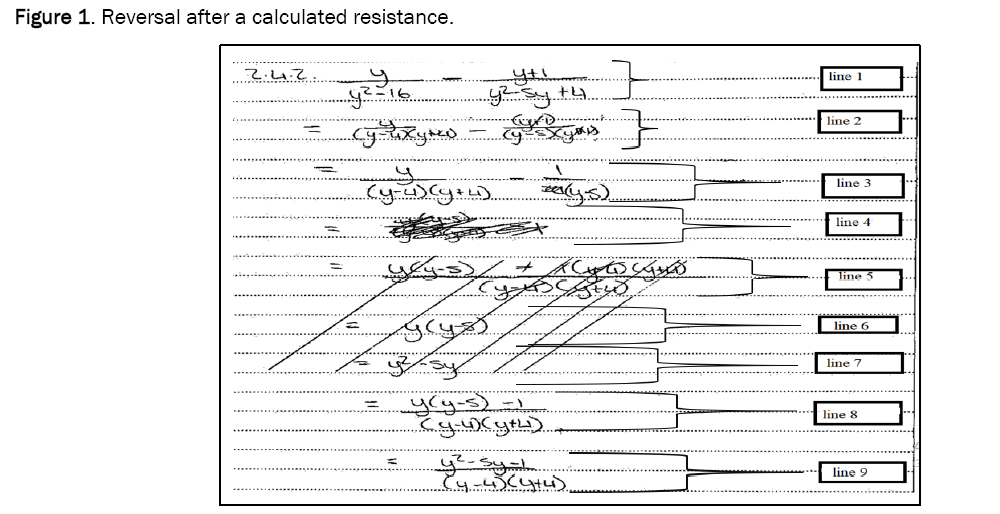 Figure 1. Reversal after a calculated resistance.
2.4.2. y/(y²-16) - (y+1)/(y²-5y+4) line 1
= y/((y-4)(y+4)) - (y+1)/((y-5)(y+1)) line 2
= y/((y-4)(y+4)) - 1/(y-5) line 3
= line 4
= y(y-5) + 1(y-4)(y+4)/((y-4)(y+4)) line 5
= y(y-5) line 6
= y²-5y line 7
= (y(y-5) -1)/((y-4)(y+4)) line 8
= (y²-5y-1)/((y-4)(y+4)) line 9